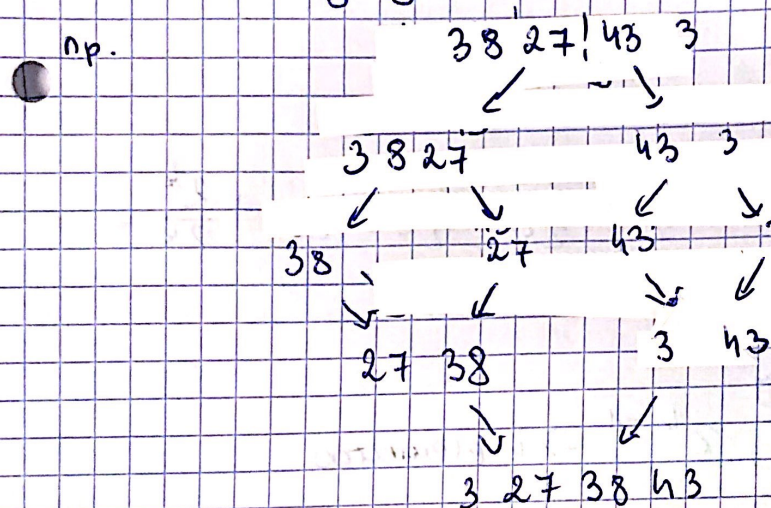 пр.
38 27! 43 3
38 27 43 3
38 27 43
27 38 3 43
3 27 38 43